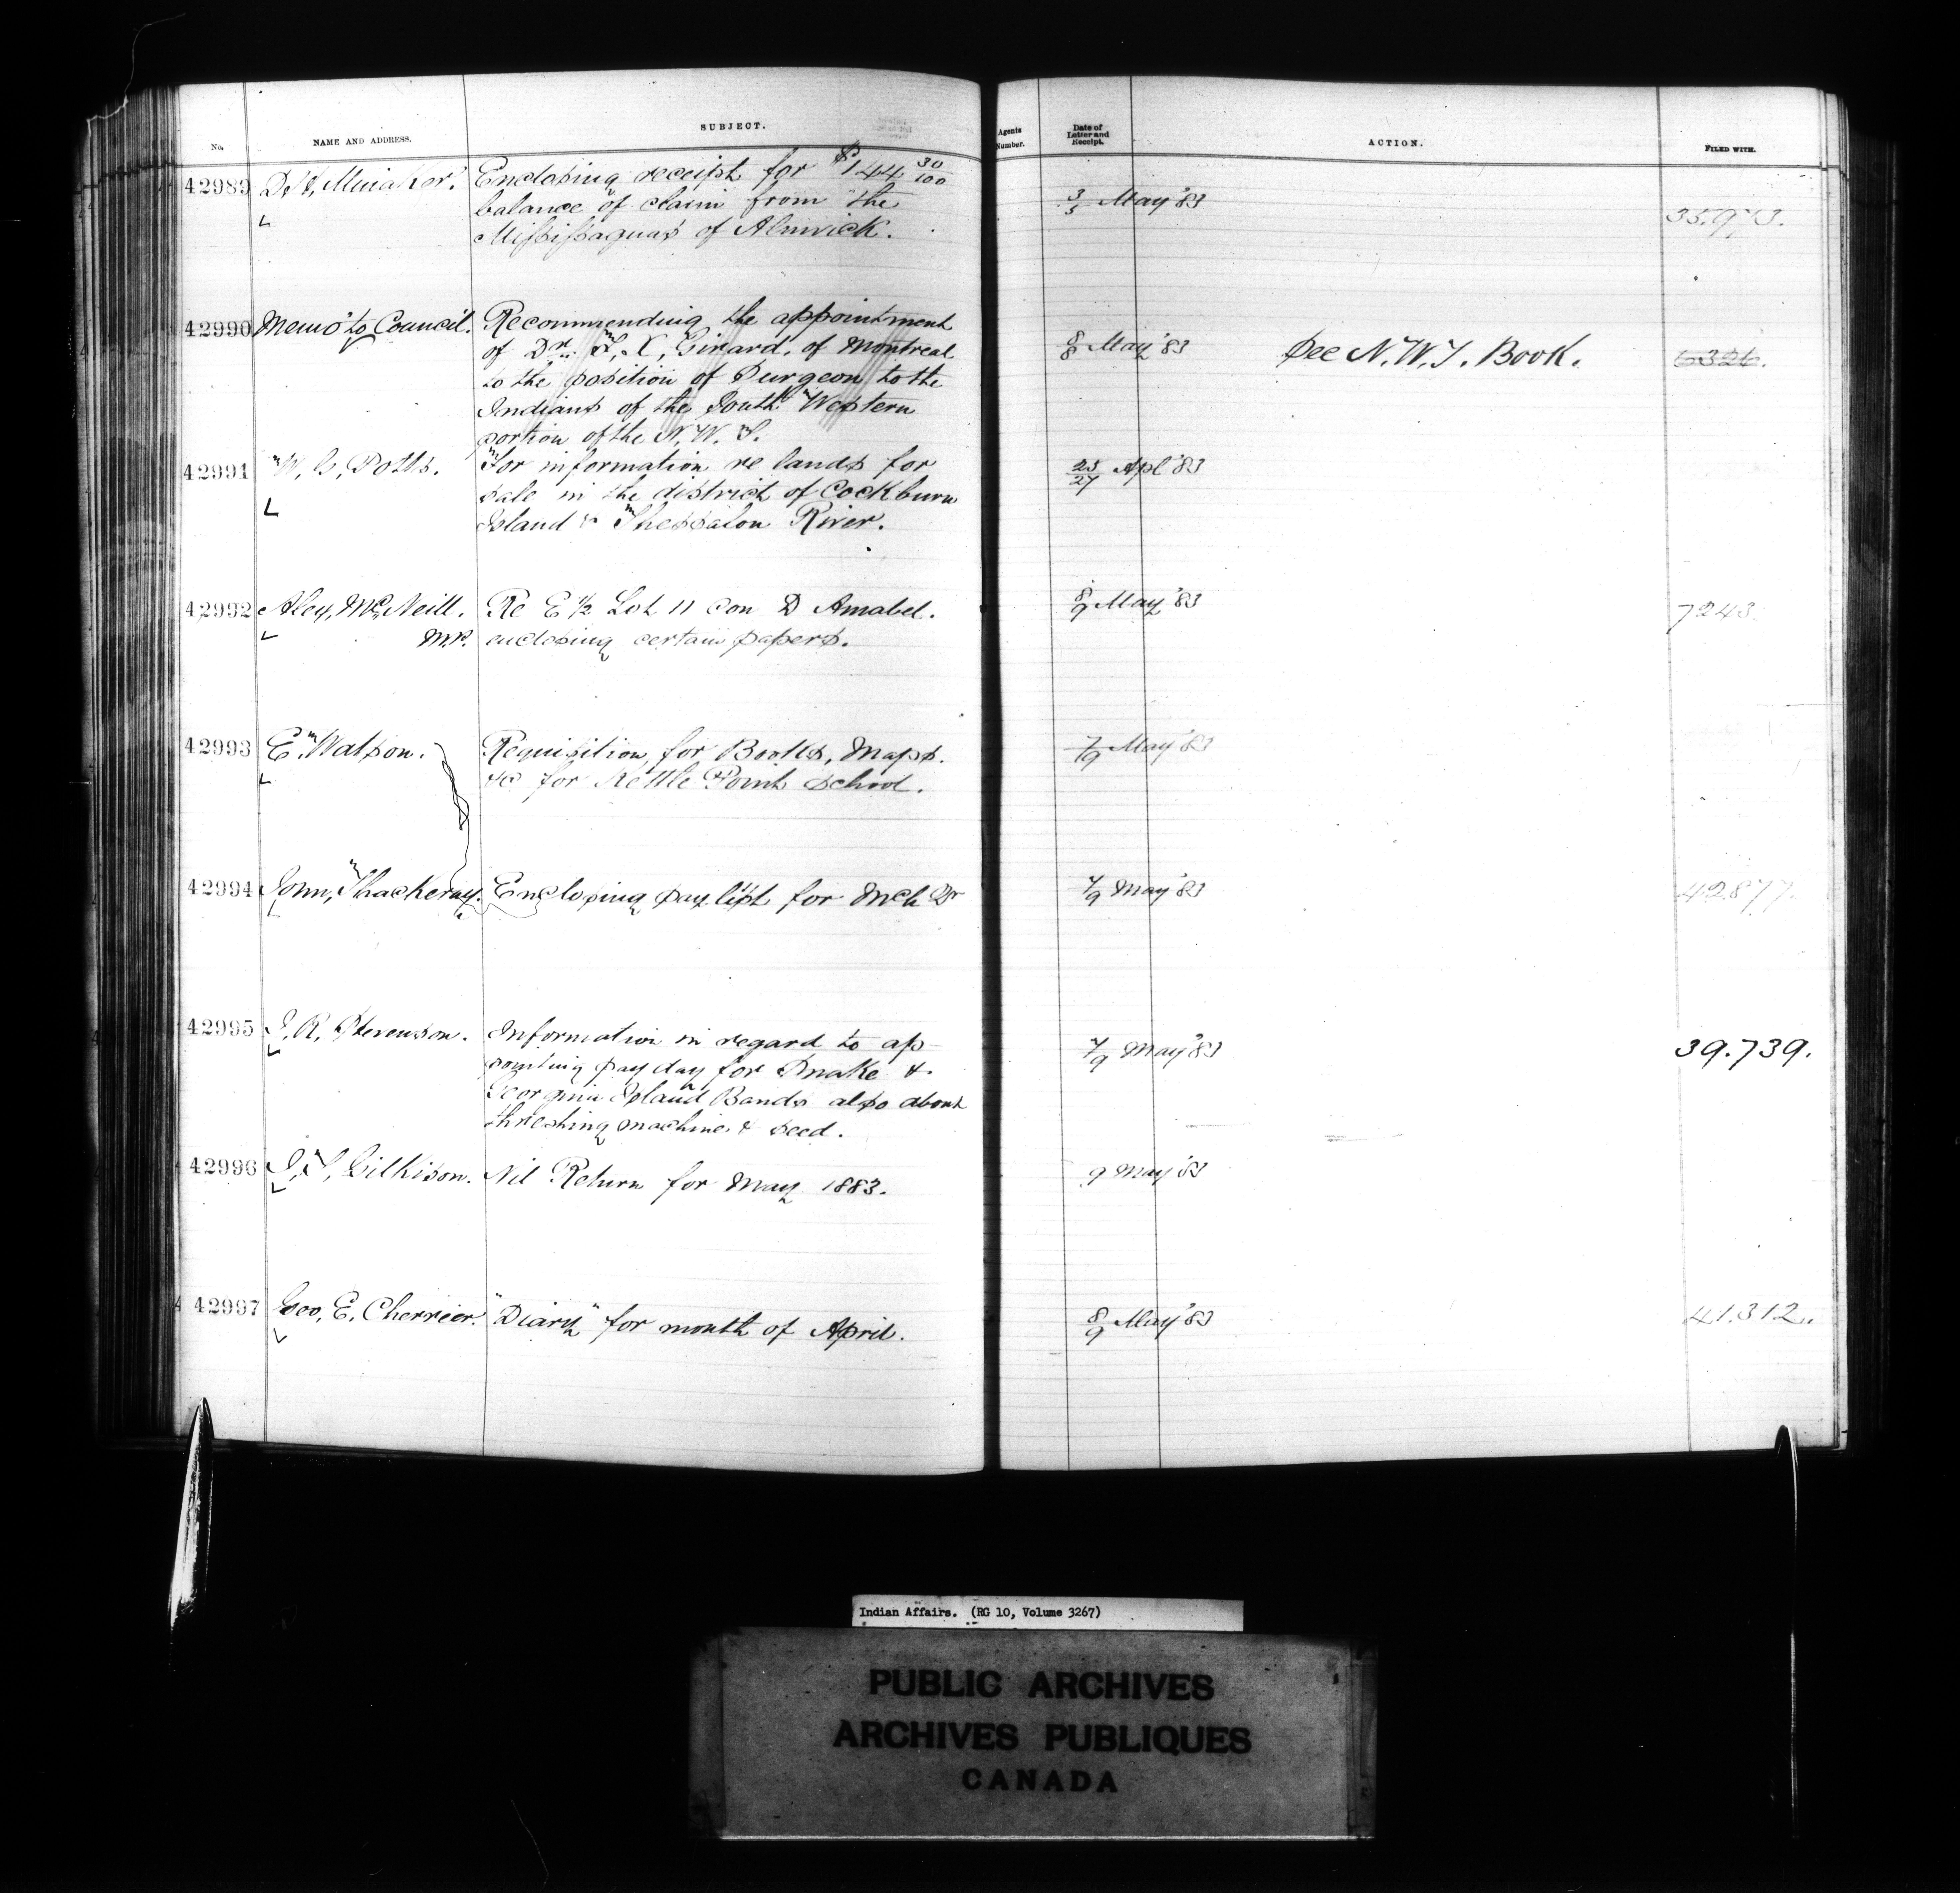 No. NAME AND ADDRESS. SUBJECT. Agents Number. Date of Letter and Receipt. ACTION. FILED WITH.
42989 D. H. Minaker. Enclosing receipt for $144 30/100 3/5 May '83 35.973.
balance of claim from the
Mississaguas of Alnwick.
42990 "Memo" to Council. Recommending the appointment 8/8 May '83 See N.W.T. Book. 6326.
of Dr. F. X. Girard, of Montreal
to the position of Surgeon to the
Indians of the South Western
portion of the N. W. T.
42991 W. G. Potts. For information re lands for 25/27 Apl '83
sale in the district of Cockburn
Island & Thessalon River.
42992 Alex, McNeill. Re E 1/2 Lot 11 Con D Amabel. 8/9 May '83 7243.
M.P. enclosing certain papers.
42993 E. Watson. Requisition for Books, Maps. 7/9 May '83
&c for Kettle Point School.
42994 John, Thackeray. Enclosing pay list for Mch Qr 7/9 May '83 42877.
42995 J. R. Stevenson. Information in regard to ap- 7/9 May '83 39.739.
pointing pay day for Snake &
Georgina Island Bands also about
threshing machine & seed.
42996 J. T. Gilkison. Nil Return for May 1883. 9 May '83
42997 Geo, E. Cherrier. "Diary" for month of April. 8/9 May '83 41.312.
Indian Affairs. (RG 10, Volume 3267)
PUBLIC ARCHIVES
ARCHIVES PUBLIQUES
CANADA